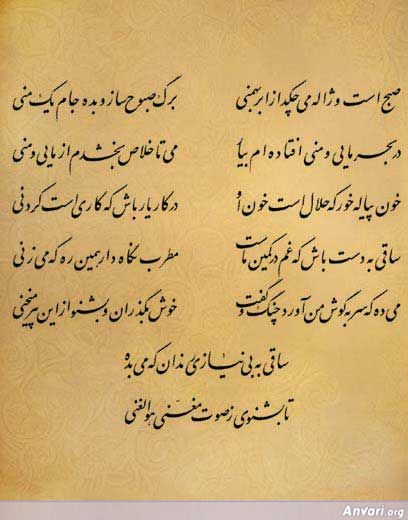 صبح است و ژاله می چکد از ابر بهمنی برگ صبوح ساز و بده جام یک منی
در بحر مایی و منی افتاده ام بیار می تا خلاص بخشدم از مایی و منی
خون پیاله خور که حلال است خون او در کار یار باش که کاری است کردنی
ساقی به دست باش که غم در کمین ماست مطرب نگاه دار همین ره که می زنی
می ده که سر به گوش من آورد چنگ و گفت خوش بگذران و بشنو از این پیر منحنی
ساقی به بی نیازی رندان که می بده
تا بشنوی ز صوت مغنّی هو الغنی
Anvari.org